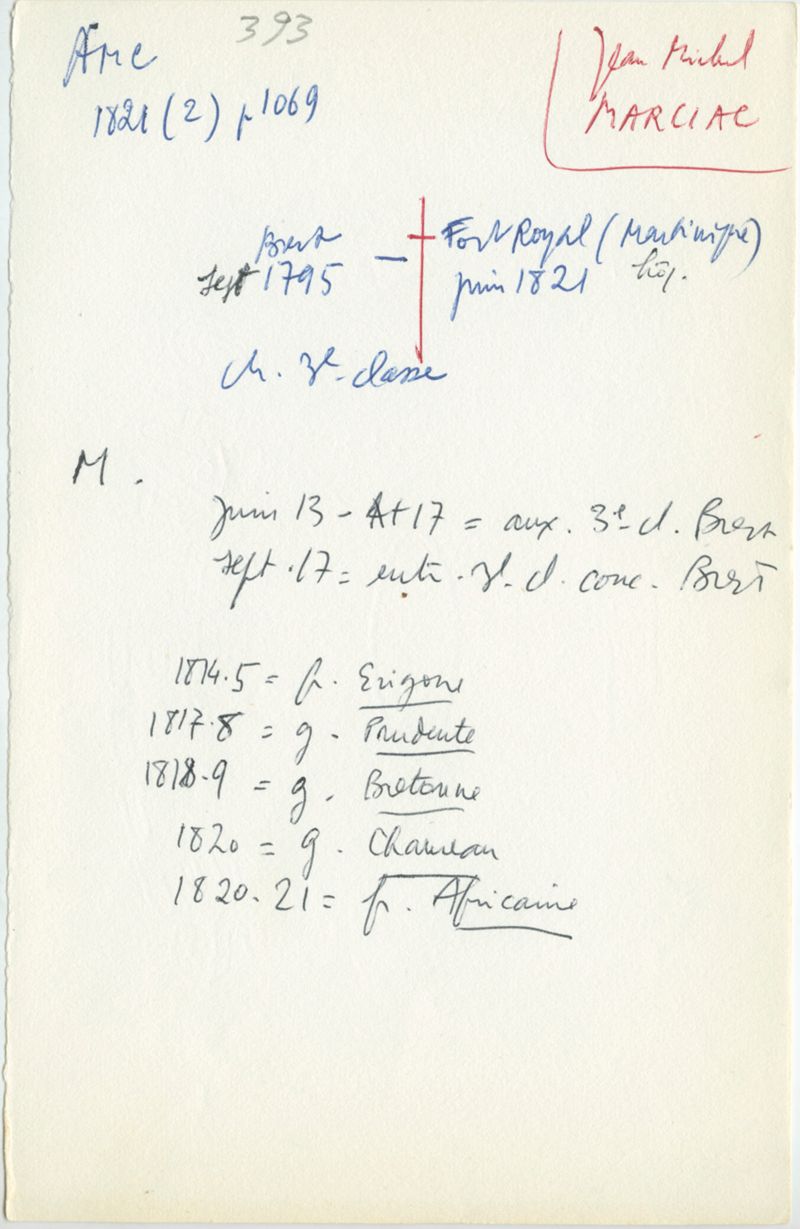 393
AMC
1821 (2) p 1069
Jean Michel
MARCIAC
Brest
sept 1795 – † Fort Royal (Martinique)
juin 1821 hôp.
ch. 3e classe
M.
Juin 13 - At 17 = aux. 3e cl. Brest
sept. 17 = entr. 3e cl. conc. Brest
1814.5 = fr. Erigone
1817.8 = g. Prudente
1818.9 = g. Bretonne
1820 = g. Chameau
1820.21 = fr. Africaine